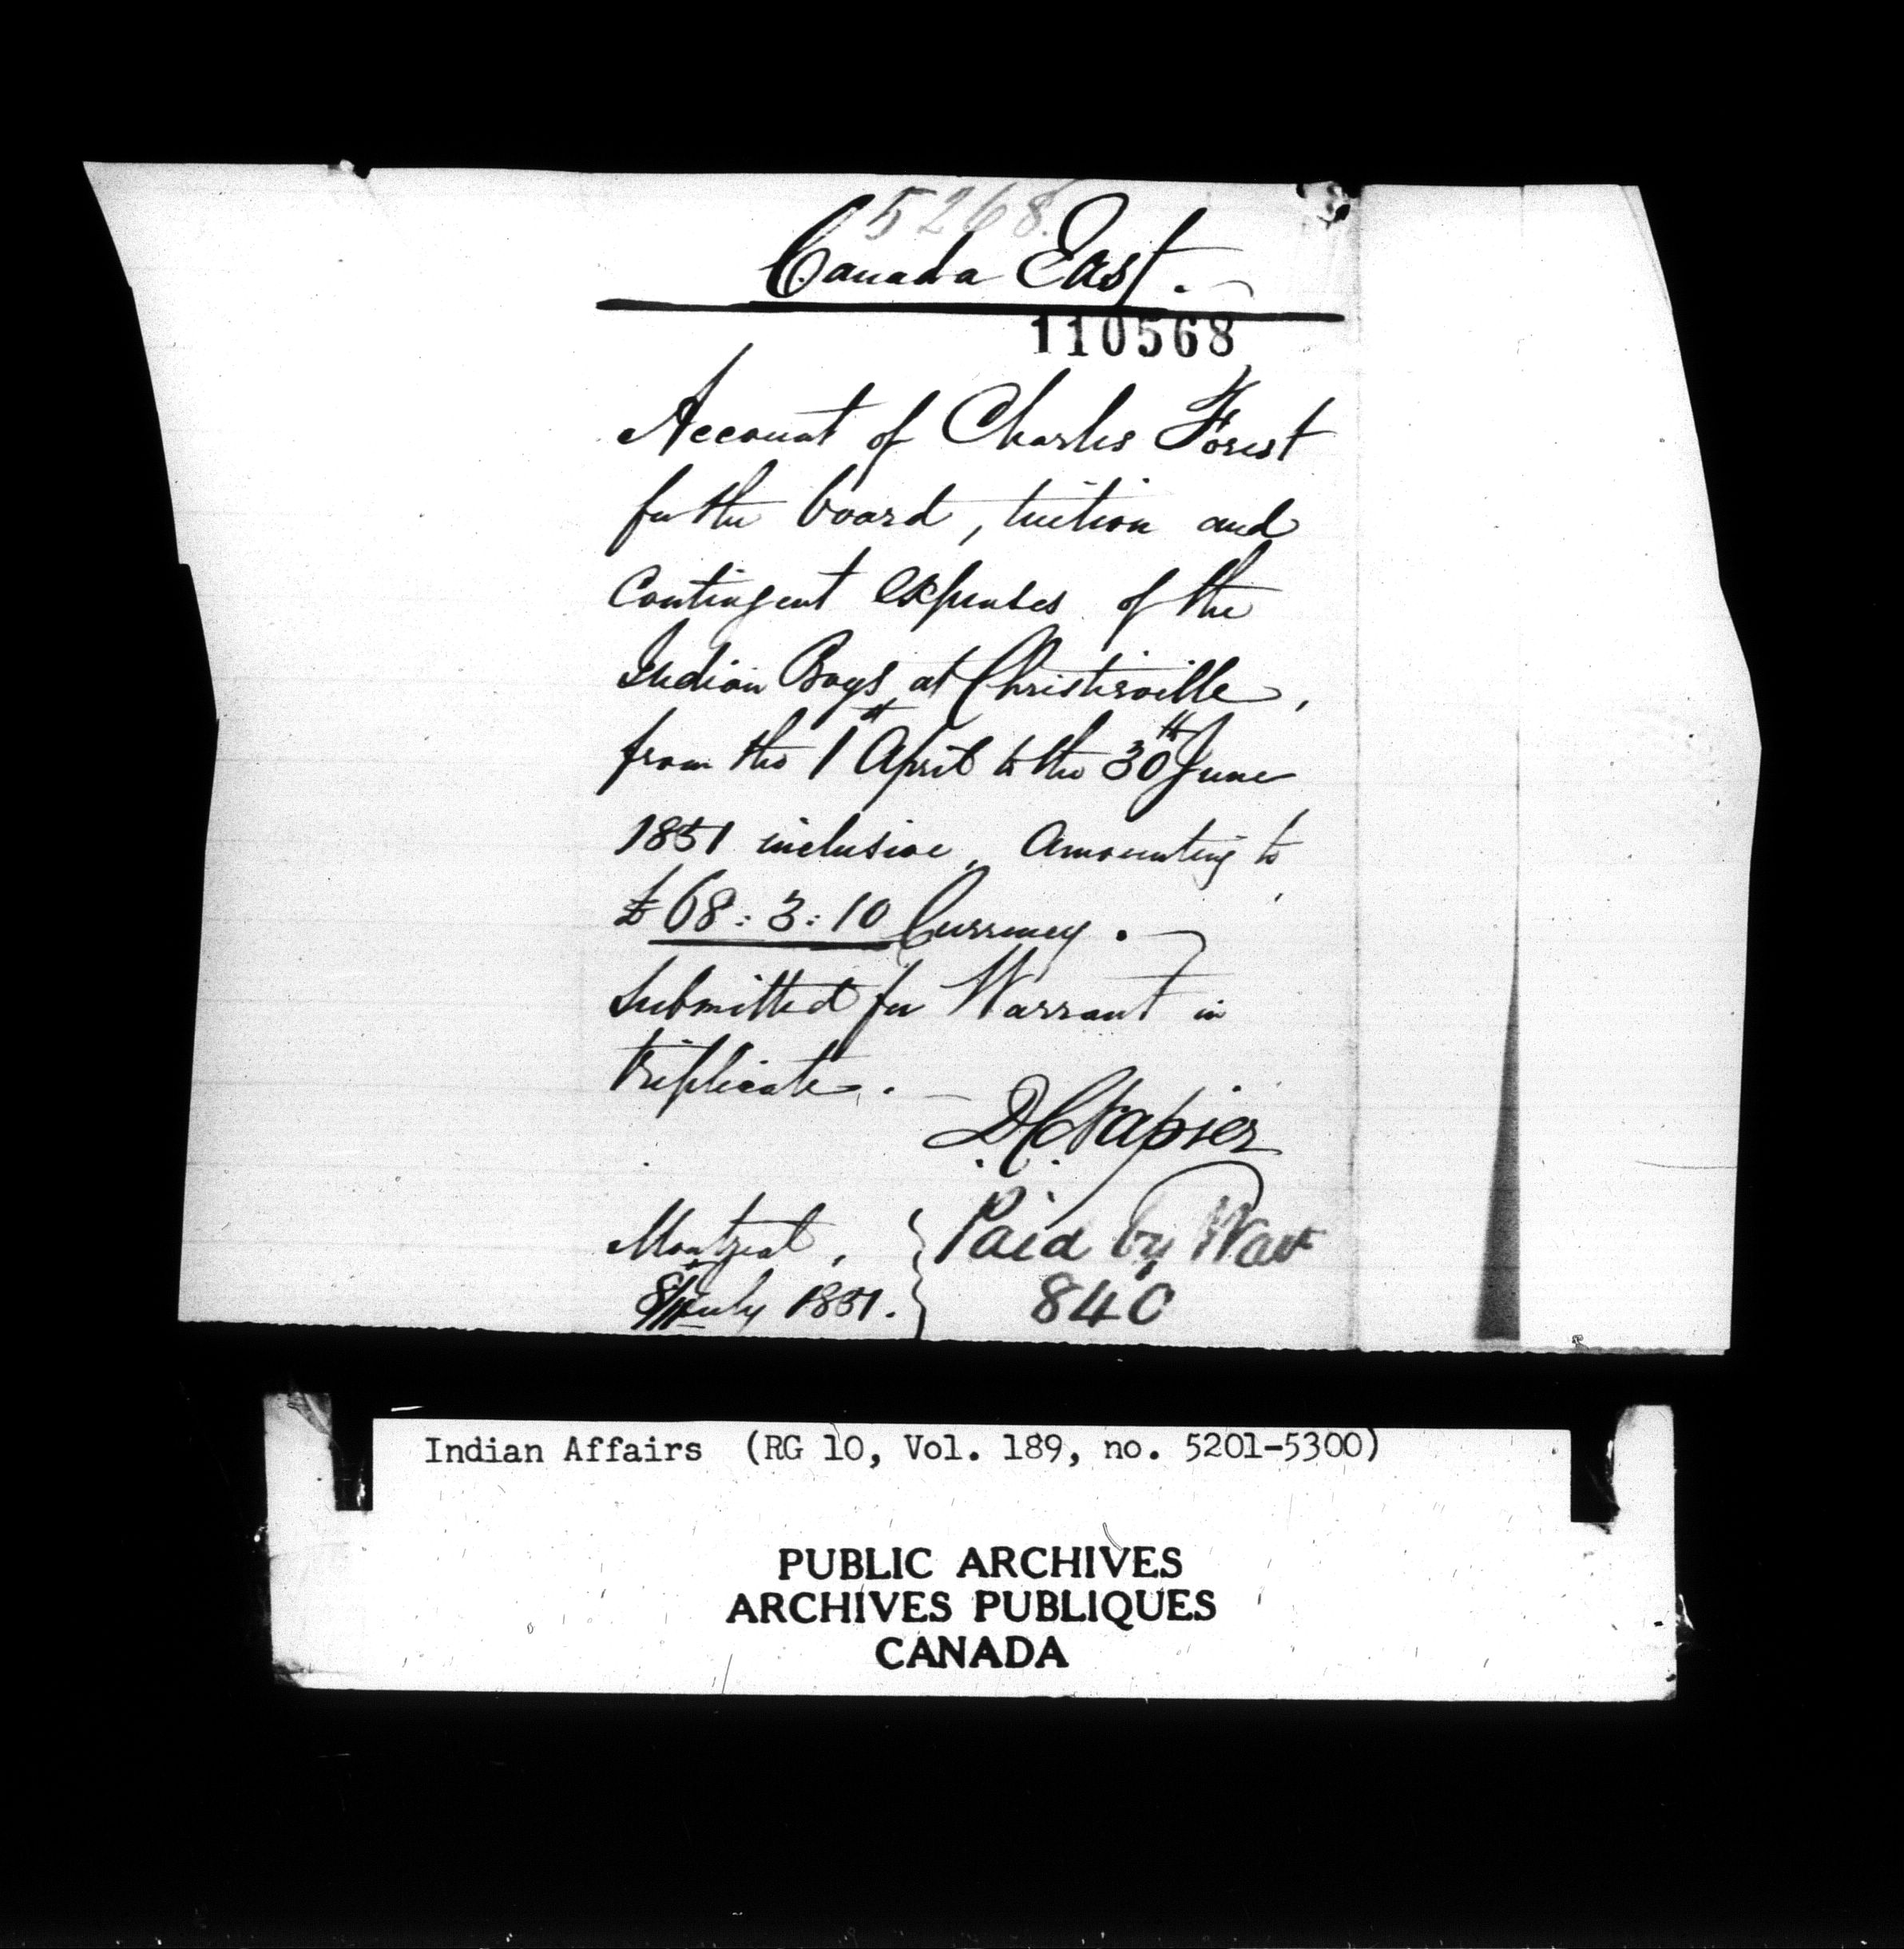 5268.
Canada East.
110568
Account of Charles Forest
for the board, tuition and
Contingent expenses of the
Indian Boys, at Christieville,
from the 1st April to the 30th June
1851 inclusive, Amounting to
£68:3:10 Currency.
Submitted for Warrant in
triplicate.
D.C. Napier
Montreal,
July 1851.
Paid by Wart
840
Indian Affairs (RG 10, Vol. 189, no. 5201-5300)
PUBLIC ARCHIVES
ARCHIVES PUBLIQUES
CANADA